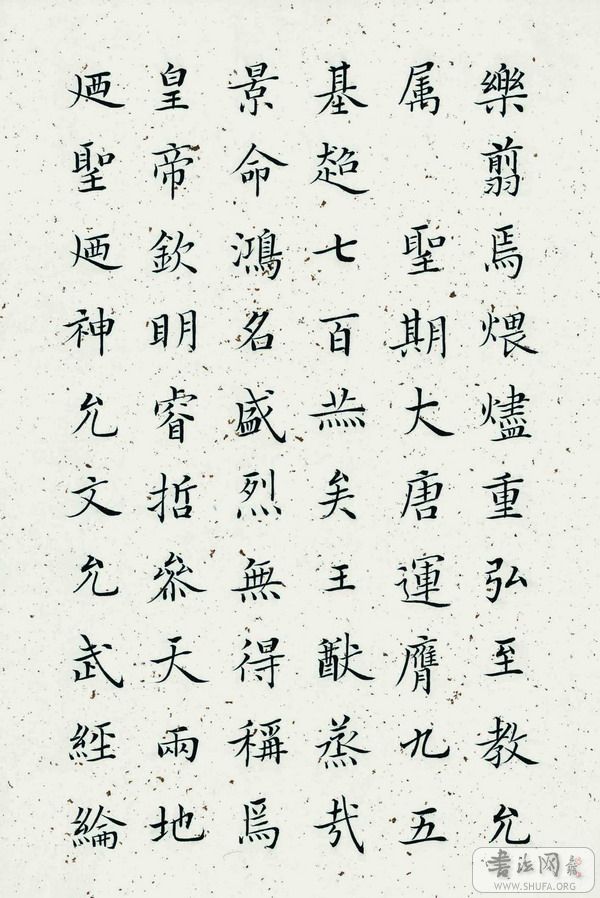 樂剪焉煨燼重弘至教允
属　聖期大唐運膺九五
基超七百赫矣王猷蒸哉
景命鴻名盛烈無得稱焉
皇帝欽明睿哲叅天兩地
廼聖廼神允文允武經綸
書法网
WWW.SHUFA.ORG